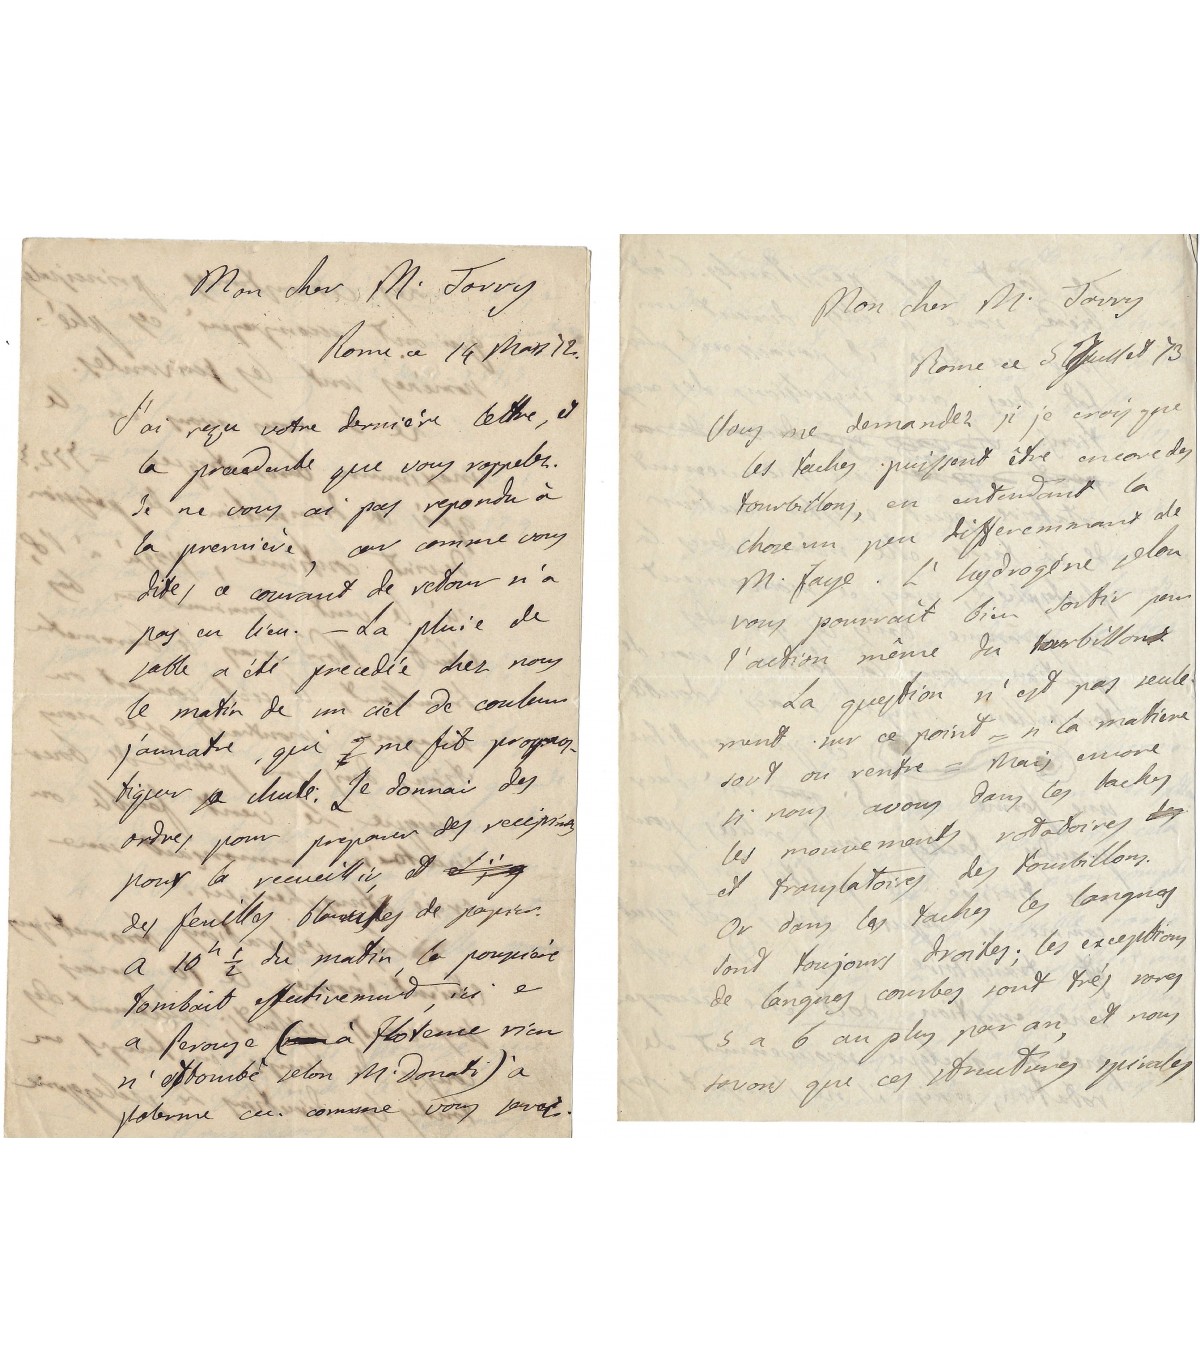 Mon cher M. Tarry
Rome ce 14 Mars 72.
J'ai reçu votre dernière lettre, et
la precedente que vous rappelez.
Je ne vous ai pas repondu à
la première, car comme vous
dites, ce courant de retour n'a
pas eu lieu. — La pluie de
sable a été precedée chez nous
le matin de un ciel de couleur
jaunatre, qui me fit prognos-
tiquer sa chute. Je donnai des
ordres pour preparer des recipients
pour la recueillir, et
des feuilles blanches de papier.
A 10h 1/2 du matin, la poussière
tombait effectivement, ici e
a Perouse ( à Florence rien
n'est tombé selon M. Donati) à
palerme comme vous savez.
Mon cher M. Tarry
Rome ce 5 Juillet 73
Vous me demandez si je crois que
les taches puissent être encore des
tourbillons, en entendant la
chose un peu differemmant de
M. Faye. L'hydrogéne selon
vous pourrait bien sortir pour
l'action même du tourbillon
La question n'est pas seule-
ment sur ce point = si la matiere
sort ou rentre = Mais encore
si nous avons dans les taches
les mouvements rotatoires
et translatoires des tourbillons.
Or dans les taches les langues
sont toujours droites; les exceptions
de langues courbes sont trés rares
5 a 6 au plus par an, et nous
savons que ces structures spirales